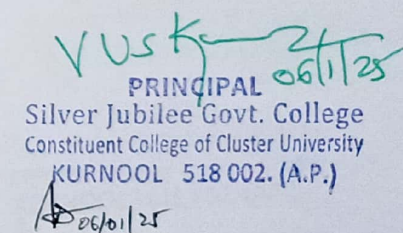 06/1/25
PRINCIPAL
Silver Jubilee Govt. College
Constituent College of Cluster University
KURNOOL 518 002. (A.P.)
06/01/25